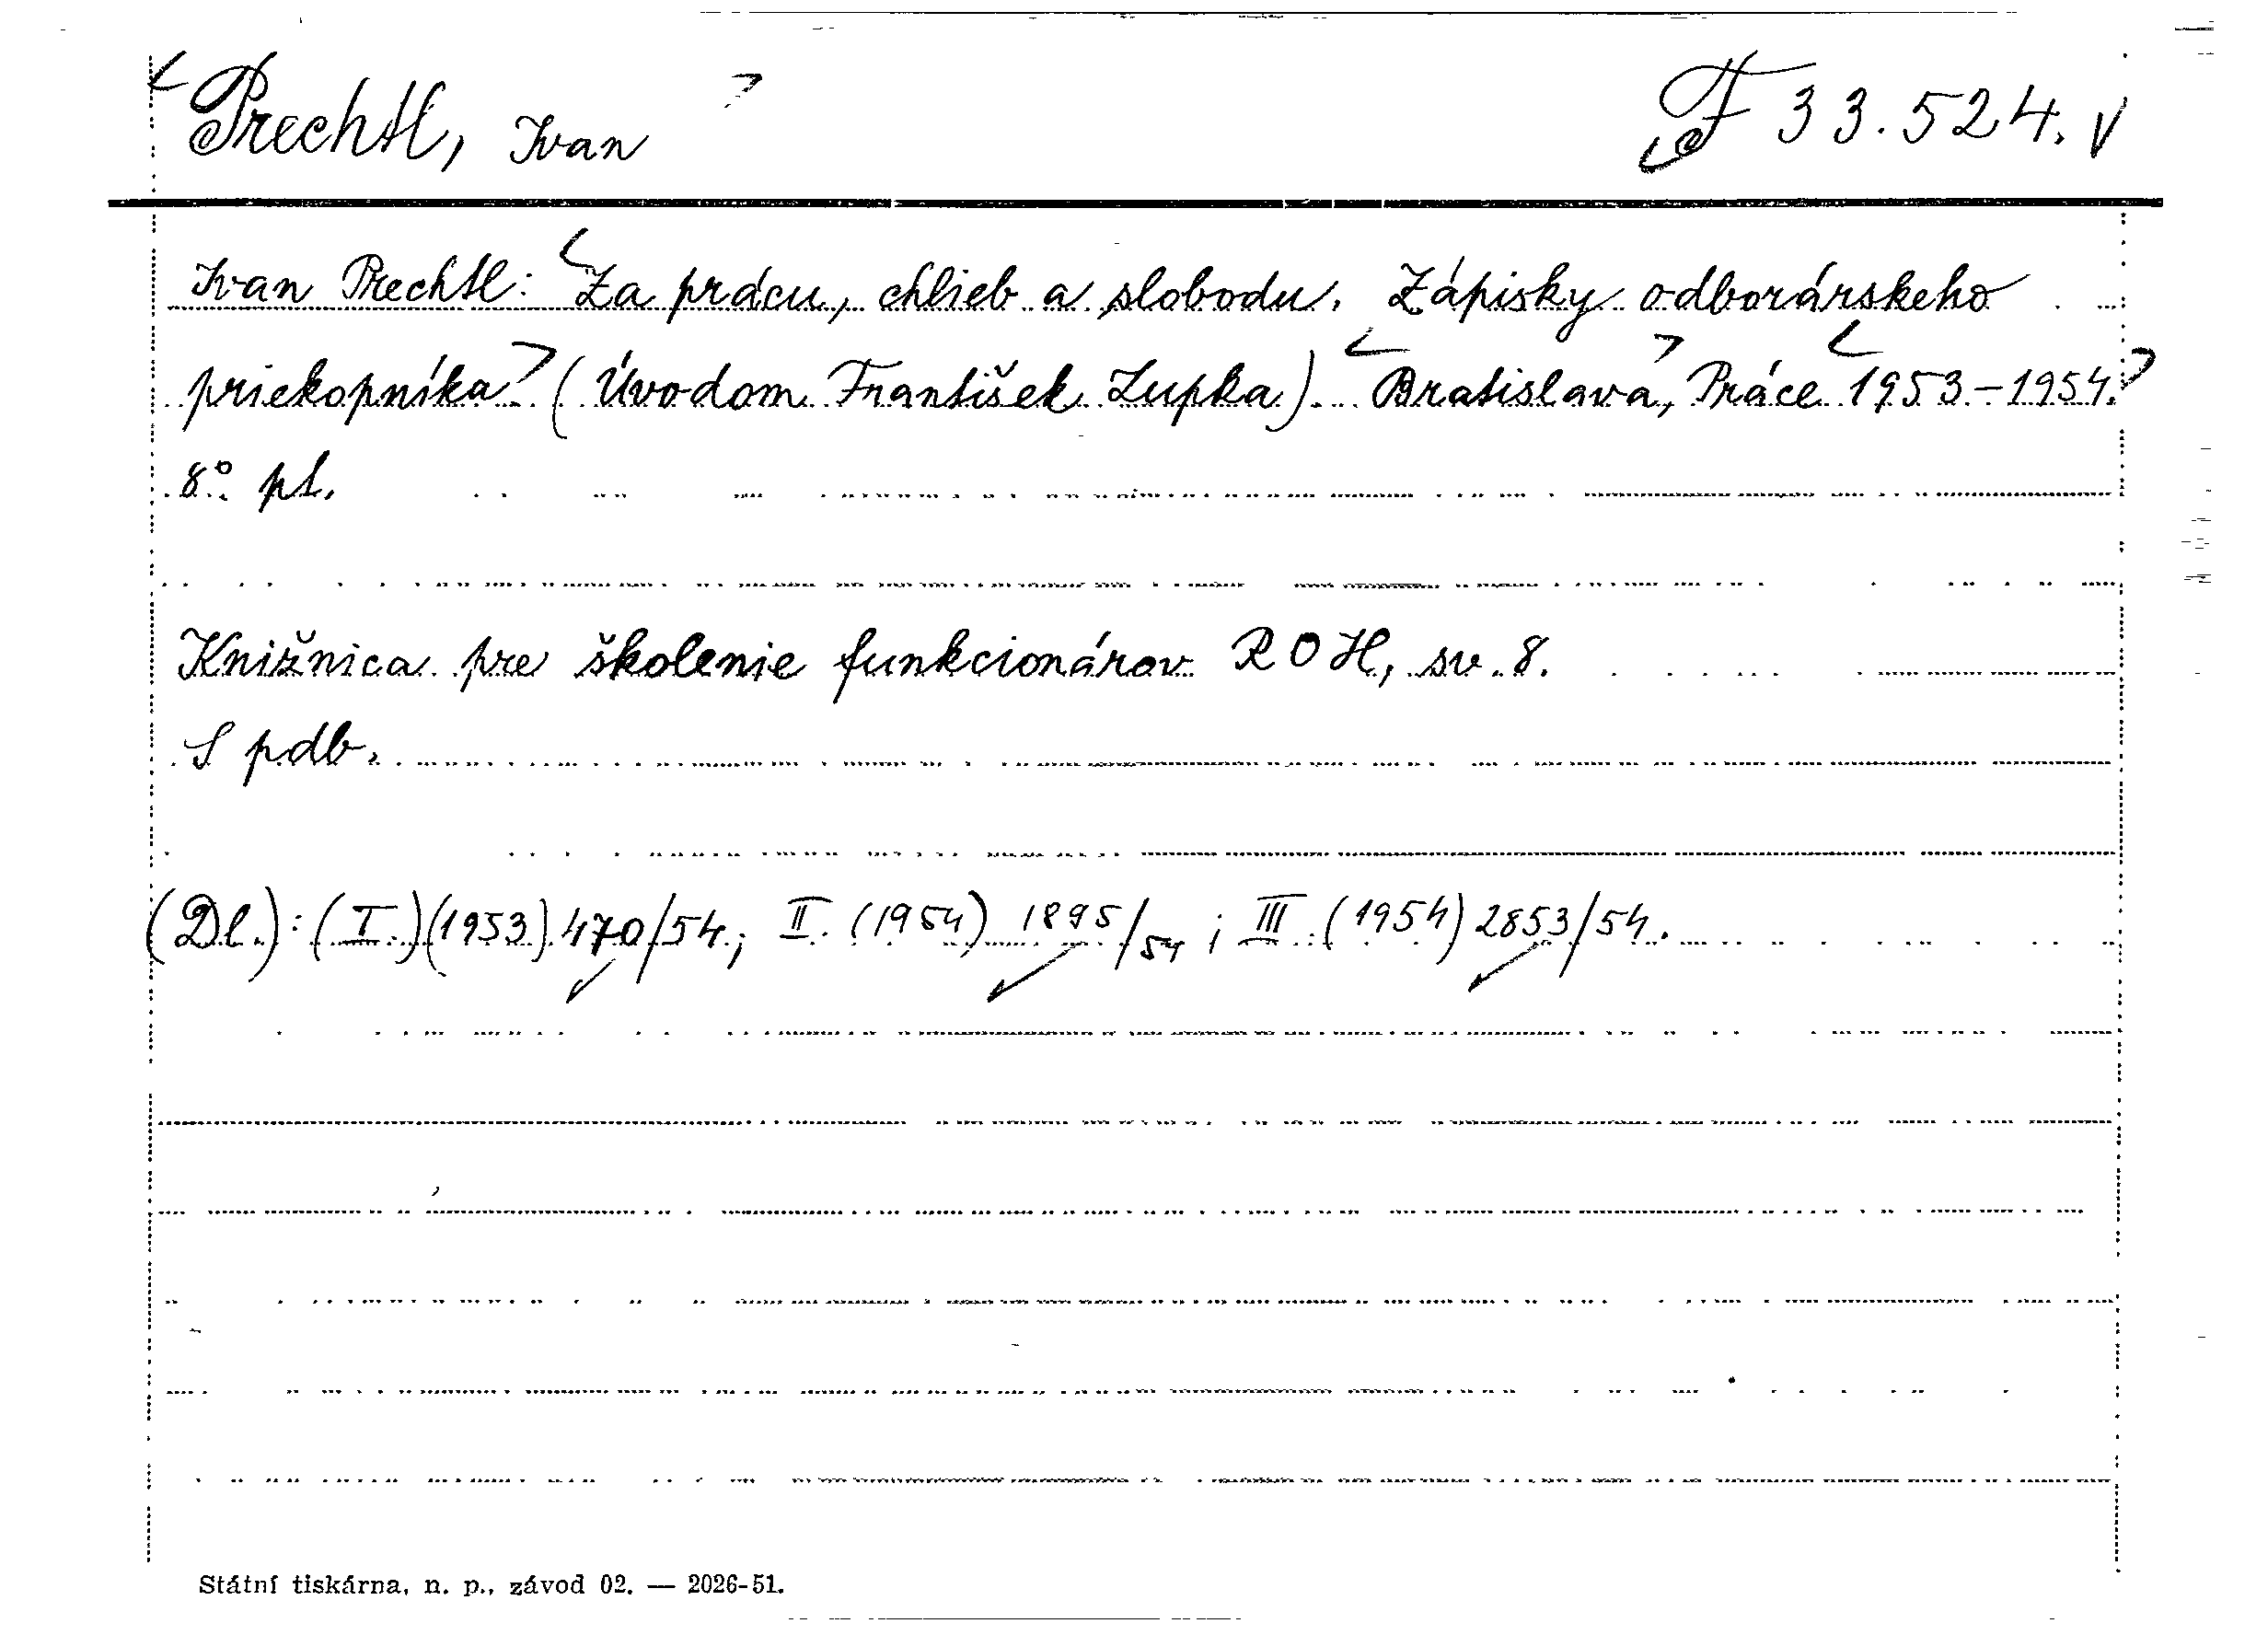 Prechtl, Ivan F 33.524.
Ivan Prechtl: Za prácu, chlieb a slobodu. Zápisky odborárskeho
priekopníka (Úvodom František Zupka). Bratislava, Práce 1953-1954.
8°. pl.
Knižnica pre školenie funkcionárov ROH, sv. 8.
S pdb.
(Dl.): (I.)(1953) 470/54; II. (1954) 1895/54; III. (1954) 2853/54.
Státní tiskárna, n. p., závod 02. — 2026-51.